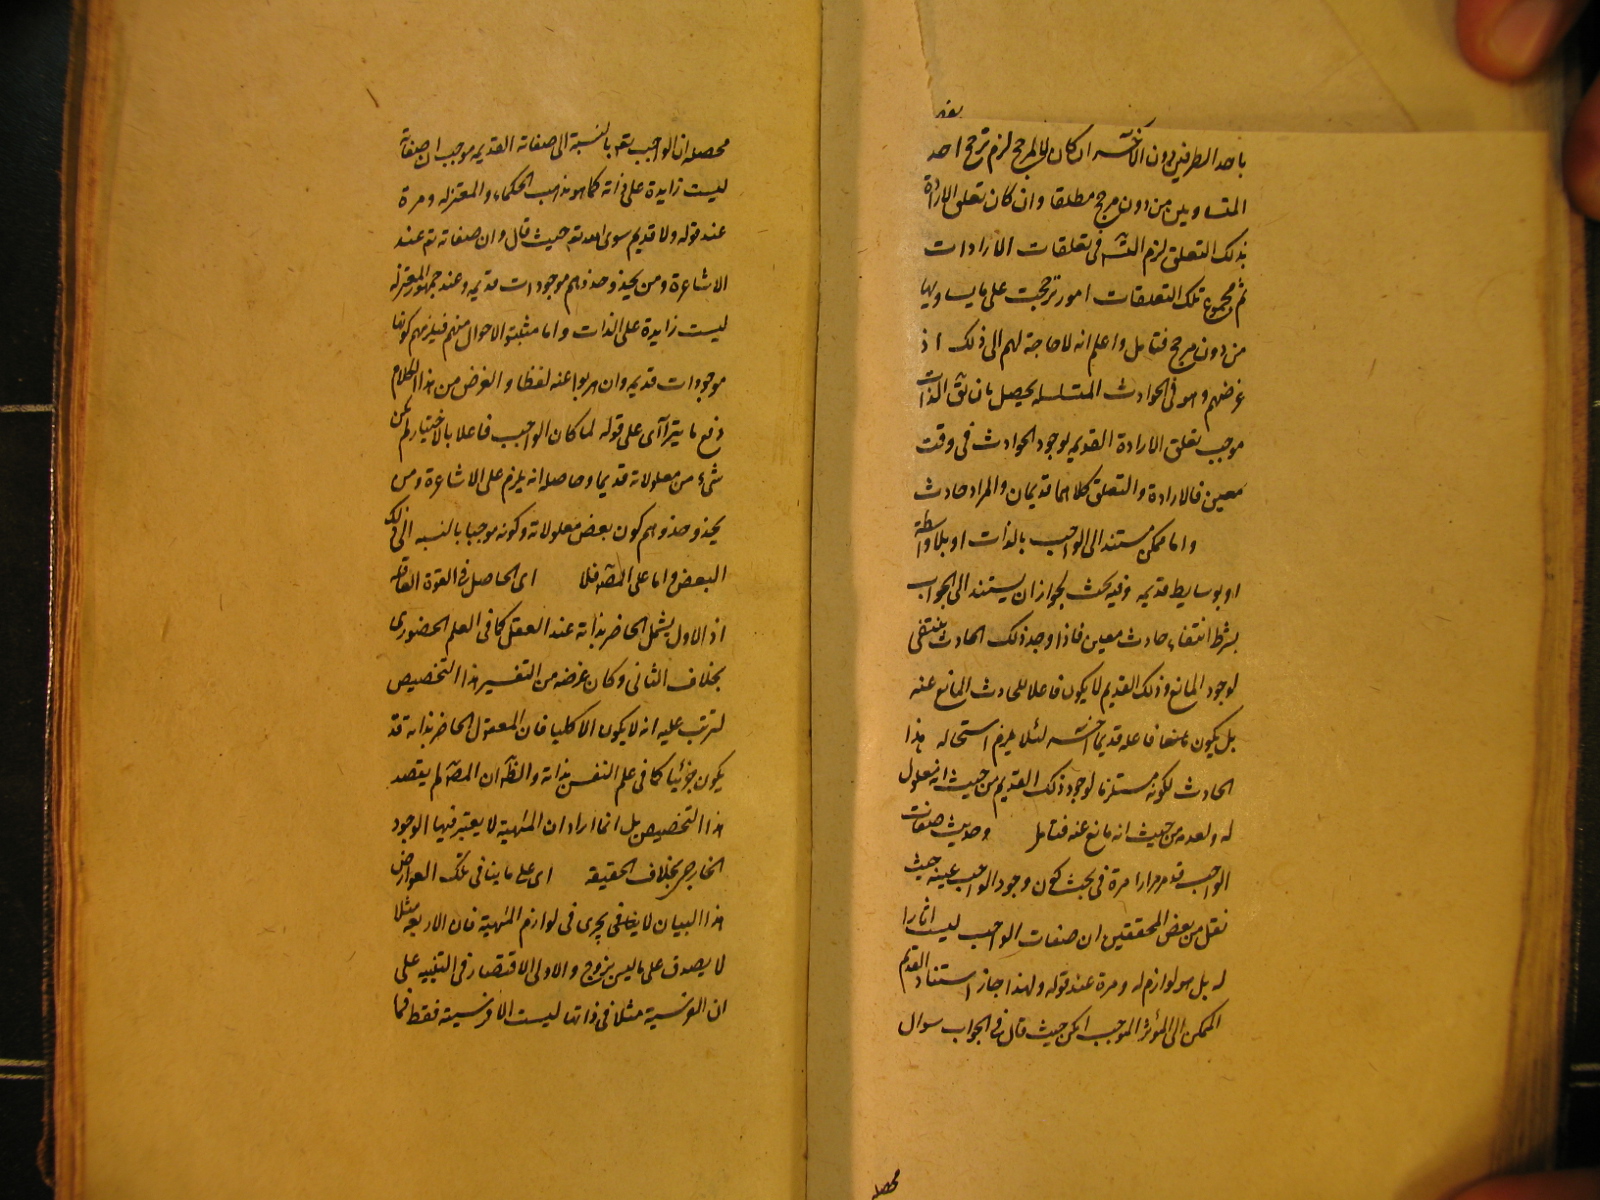 باحد الطرفين دون الآخر ان كان لا لمرجح لزم ترجح احد
المتساويين من دون مرجح مطلقا وان كان تعلق الارادة
بذلك التعلق لزم التسـ في تعلقات الارادات
ثم مجموع تلك التعلقات امور ترجحت على ما يساويها
من دون مرجح فتامل واعلم انه لا حاجة لهم الى ذلك اذ
غرضهم وهو في الحوادث المتسلسله يحصل بان يق الذات
موجب بتعلق الارادة القديمه بوجود الحوادث في وقت
معين فالارادة والتعلق كلاهما قديمان والمراد حادث
واما ممكن مستند الى الواجب بالذات او بلا واسطة
او بوسايط قديمه وفيه بحث لجواز ان يستند الى الجواب
بشرط انتفاء حادث معين فاذا وجد ذلك الحادث ينتفى
لوجود المانع وذلك القديم لا يكون فاعلا للحادث المانع عنه
بل يكون فاعله قديما آخر لئلا يلزم استحاله هذا
الحادث لكونه مستلزما لوجود ذلك القديم من حيث انه معلول
له ولعدمه من حيث انه مانع عنه فتامل وحديث صفات
الواجب قد مر مرارا مرة في بحث كون وجود الواجب عينه حيث
نقل من بعض المحققين ان صفات الواجب ليست اثارا
له بل هو لوازم له ومرة عند قوله ولهذا جاز استناد القديم
الممكن الى المؤثر الموجب امكن حيث قال في الجواب سوال
محصله
محصله ان الواجب تعـ بالنسبة الى صفاته القديمه موجب ان صفاته
ليست زايدة على ذاته كما هو مذهب الحكماء والمعتزله ومرة
عند قوله ولا قديم سوى الله تعـ حيث قال وان صفاته تعـ عند
الاشاعرة ومن يحذو حذوهم موجودات قديمه وعند جمهور المعتزله
ليست زايدة على الذات واما مثبتو الاحوال منهم فيلزمهم كونها
موجودات قديمه وان هربوا عنه لفظا والغرض من هذا الكلام
دفع ما يترآاى على قوله لما كان الواجب فاعلا بالاختيار لم يكن
شيء من معلولاته قديما وحاصله انه يلزم على الاشاعرة ومن
يحذو حذوهم كون بعض معلولاته وكونه موجبا بالنسبه الى ذلك
البعض واما على المصـ فلا اى الحاصل في القوة العاقله
اذ الاول يشمل الحاضر بذاته عند العقل كما في العلم الحضورى
بخلاف الثانى وكان غرضه من التفسير هذا التخصيص
لترتب عليه انه لا يكون الا كليا فان المعقول الحاضر بذاته قد
يكون جزئيا كما في علم النفس بذاته والظـ ان المصـ لم يقصد
هذا التخصيص بل انما اراد ان الماهية لا يعتبر فيها الوجود
الخارجى بخلاف الحقيقه اى على ما ينافى تلك العوارض
هذا البيان لا يجرى في لوازم الماهية فان الاربعه مثلا
لا يصدق على ما ليس بزوج والاولى الاقتصار في التنبيه على
ان الفرسية مثلا في ذاتها ليست الا فرسية فقط فما